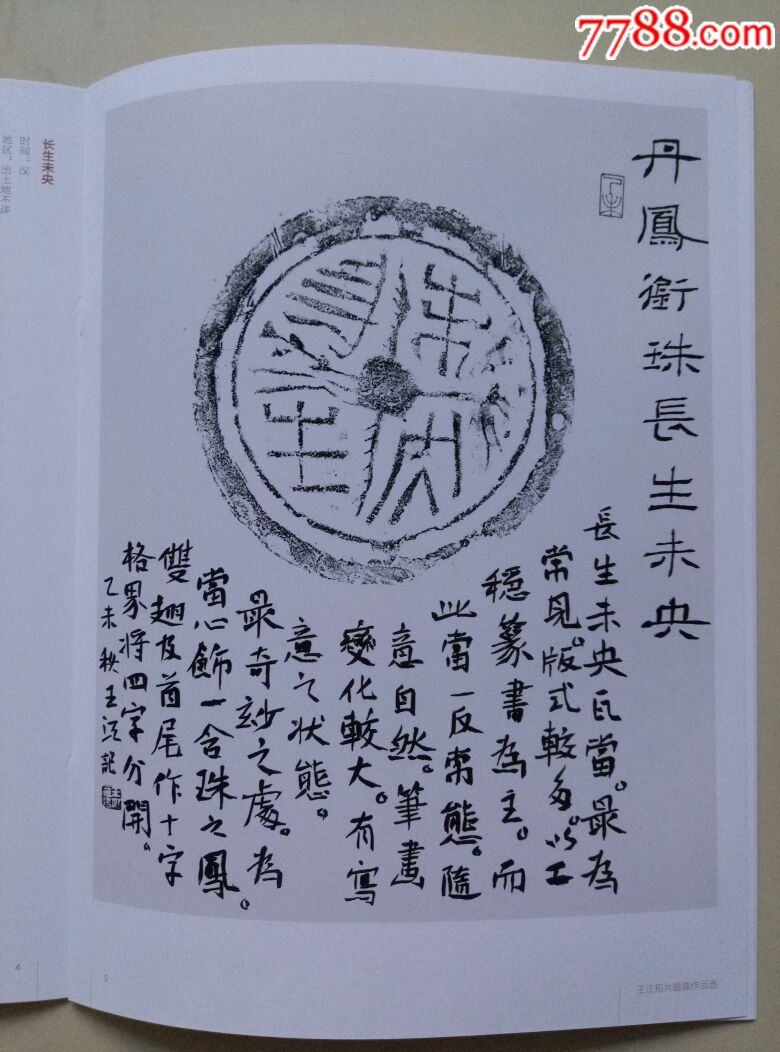 7788.com
丹鳳銜珠長生未央
長生未央瓦當。最為
常見。版式較多。以工
穩篆書為主。而
此當一反常態。隨
意自然。筆畫
變化較大。有寫
意之状態。
最奇玅之處。為
當心飾一含珠之鳳。
雙翅及首尾作十字
格界將四字分開。
乙未秋王江記
長生未央
长生未央
时间：汉
地区：出土地不详
4
5
王江拓片题跋作品选